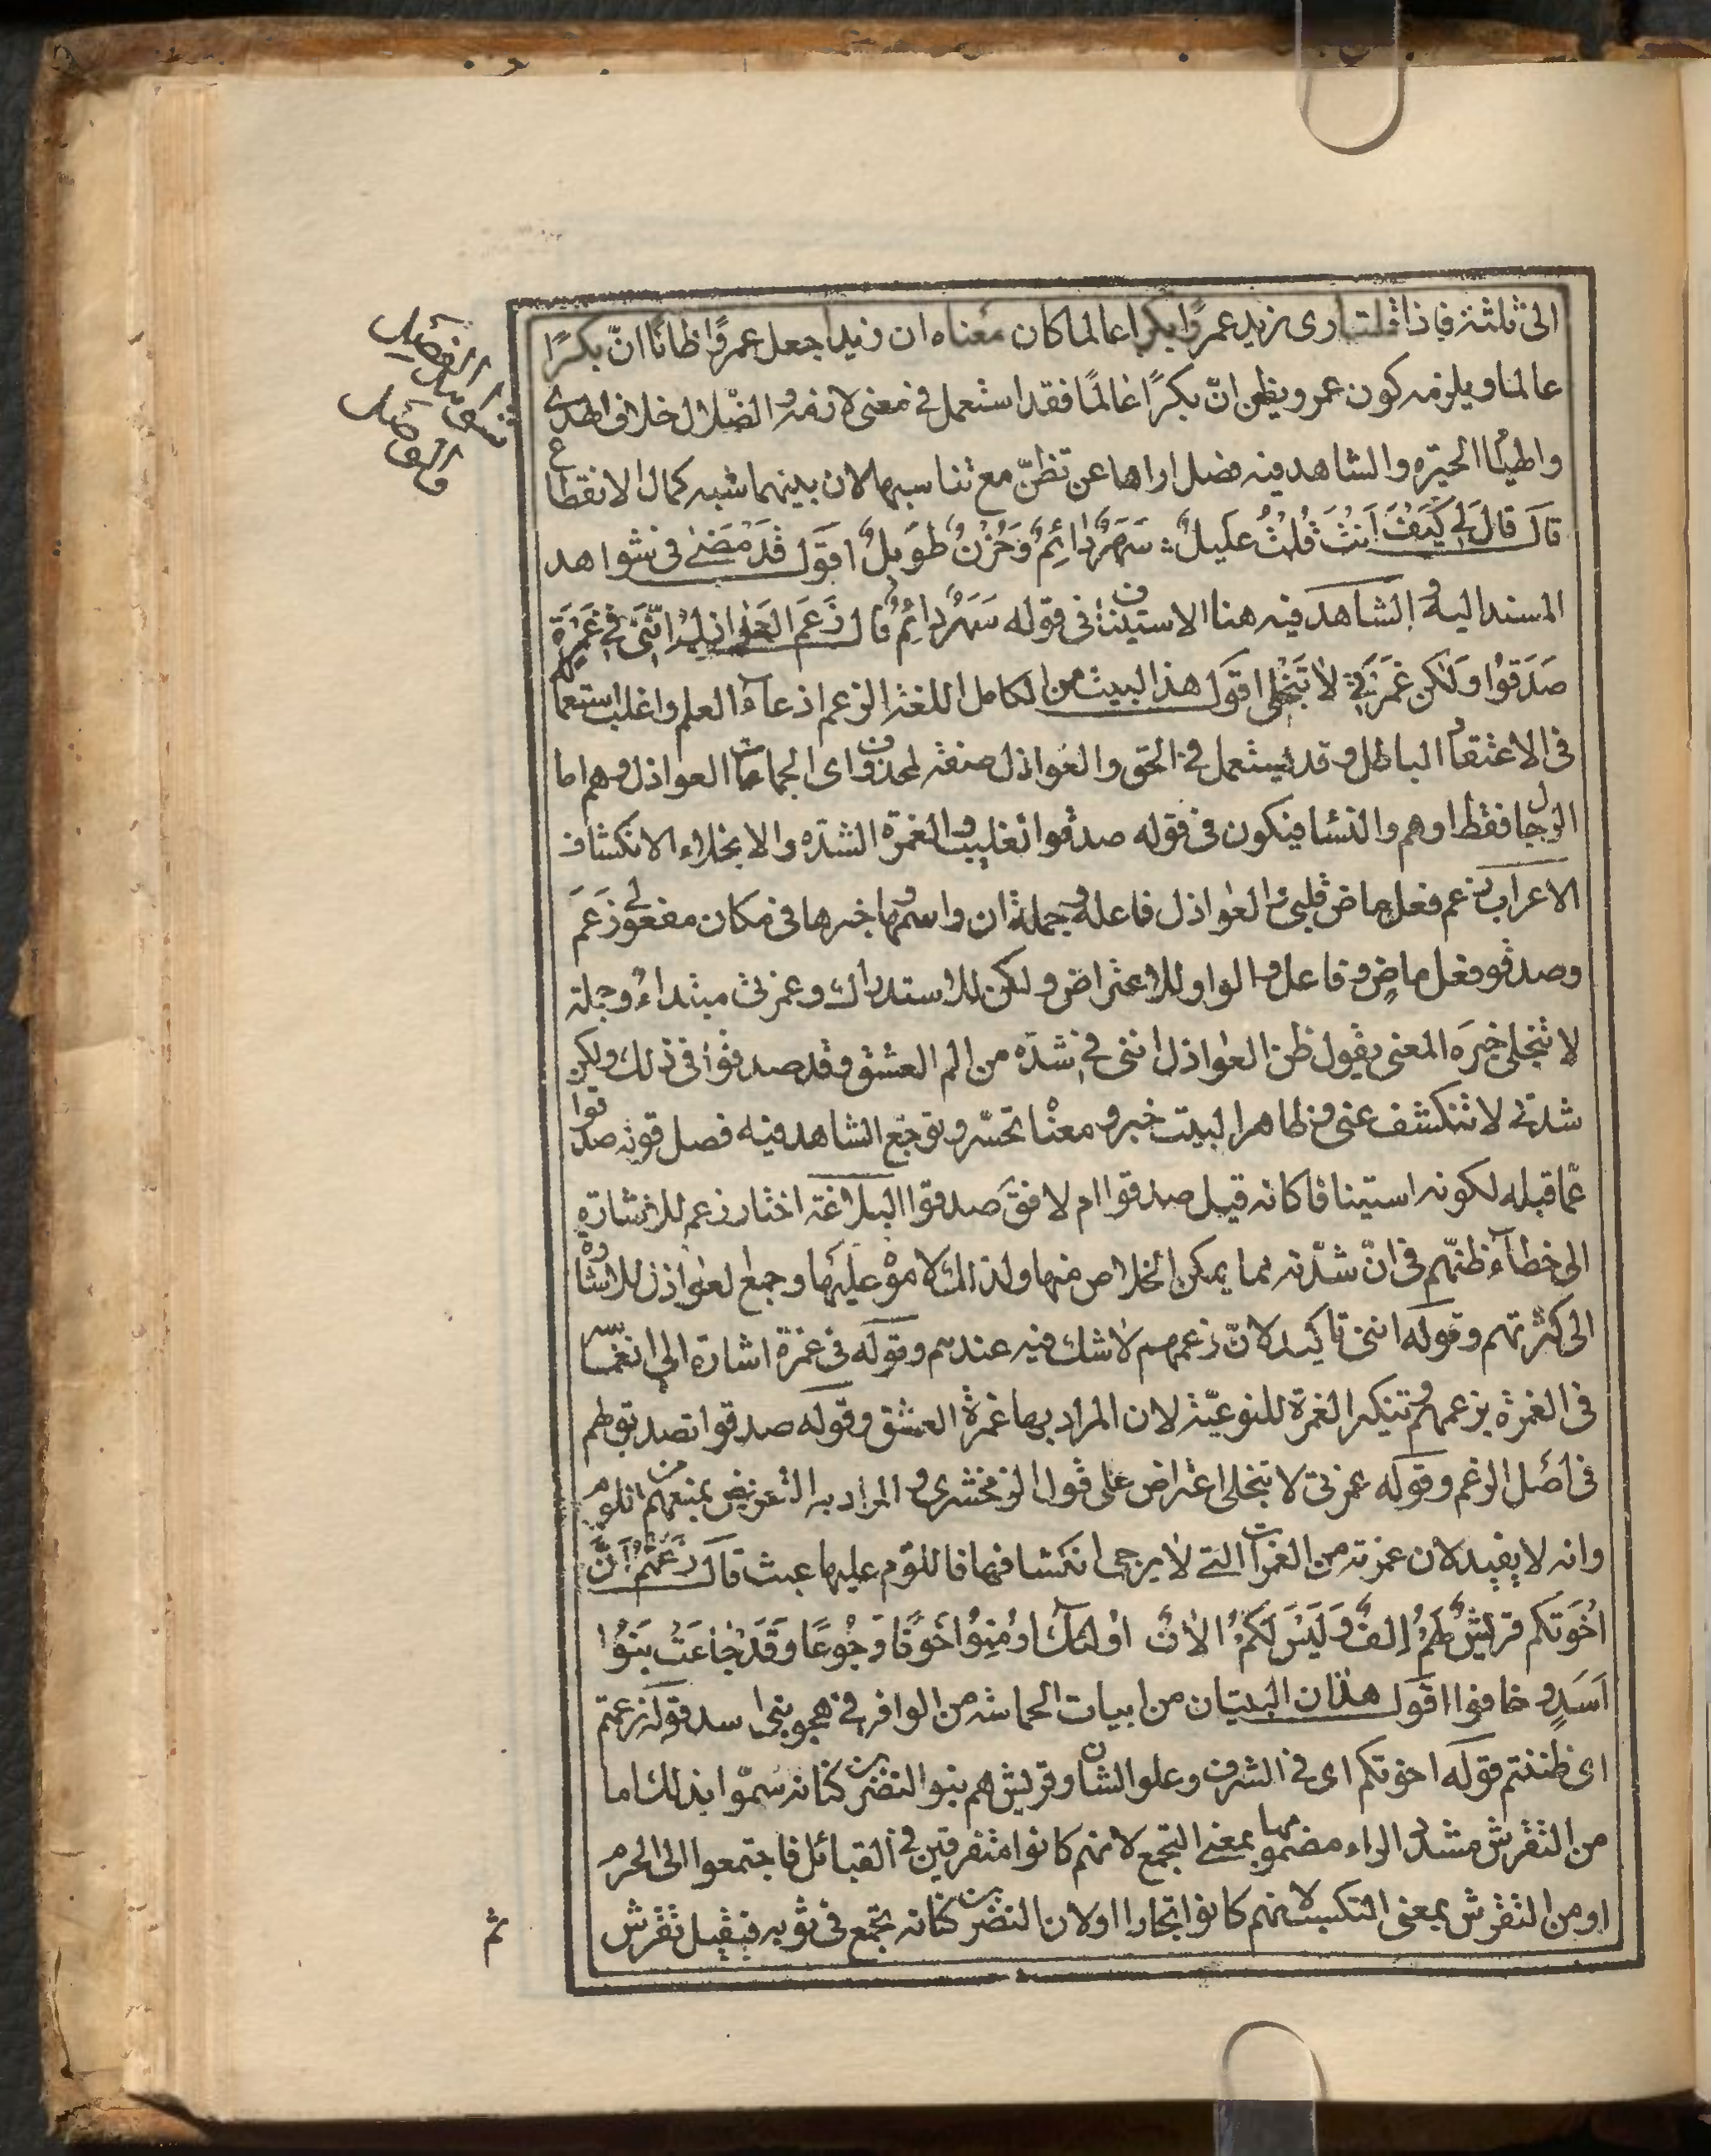 الى ثلثة فاذا قلت ارى زيد عمرًا بكرا عالما كان معناه ان زيدا جعل عمرًوا ظانًا انّ بكرًا
عالما ويلزمه كون عمرو يظن انّ بكرًا عالمًا فقد استعمل في معنى لازمه و الضّلال خلاف الهدى
والهيام الحيّرة والشاهد فيه فصل اراها عن تظنّ مع تناسبهما لان بينهما شبه كمال الانقطاع
قال قَالَ لِي كَيْفَ اَنْتَ قُلْتُ عَلِيلٌ سَهَرٌ دَائِمٌ وَحُزْنٌ طَوِيلٌ اقول قد مضى في شواهد
المسند اليه و الشاهد فيه هنا الاستيناف في قوله سَهَرٌ دائِمٌ قال زَعَمَ العَواذِلُ اَنَّنِي فِي غَمْرَةٍ
صَدَقُوا وَلٰكِن غَمْرَتِي لا تَنْجَلِي اقول هذا البيت من الكامل اللغة الزعم ادعاء العلم واغلب استعماله
في الاعتقاد الباطل وقد يستعمل في الحق والعواذل صفة لمحذوف اى الجماعات العواذل وهم اما
الرجال فقط او هم والنساء فيكون في قوله صدقوا تغليب والغمرة الشدّه والانجلاء الانكشاف
الاعراب زعم فعل ماض قلبى و العواذل فاعله و جملة ان واسمها و خبرها في مكان مفعولى زَعَمَ
وصدقو فعل ماضٍ وفاعل و الواو للاعتراض ولكن للاستدراك وغمرتى مبتداء و جملة
لا تنجلى خبره المعنى يقول ظن العواذل اننى في شدّه من الم العشق وقد صدقوا في ذلك ولكن
شدتى لا تنكشف عنى و ظاهر البيت خبر و معناه تحسّر و توجّع الشاهد فيه فصل قوله صدقوا
عمّا قبله لكونه استينافا كانه قيل صدقوا ام لا فقَ صدقوا البلاغة اختار زعم للاشارة
الى خطاء ظنّهم في انّ شدّته مما يمكن الخلاص منها ولذلك لاموه عليها وجمع العواذل للاشارة
الى كثرتهم وقوله اننى تاكيد لانّ زعمهم لا شك فيه عندهم وقوله في غمرة اشارة الى انغماسه
في الغمرة بزعمهم و تنكير الغمرة للنوعيّة لان المراد بها غمرة العشق وقوله صدقوا تصديق لهم
في اصل الزعم وقوله غمرتى لا تنجلى اعتراض على قول الزمخشرى و المراد به التعريض بمنعهم من اللوم
وانه لا يفيد لان غمرته من الغمرات التى لا يرجى انكشافها فاللوم عليها عبث قال زَعَمْتُمْ اَنَّ
اِخْوَتَكُم قُرَيْشٌ لَهُمْ اِلْفٌ وَلَيْسَ لَكُمْ اِلافٌ اولئك اُومِنُوا خَوْفًا وَجُوعًا وَقَدْ جَاعَتْ بَنُوا
اَسَدٍ و خافوا اقول هذان البيتان من ابيات الحماسة من الوافر في هجو بنى اسد قوله زعمتم
اى ظننتم قوله اخوتكم اى في الشرف وعلو الشان و قريش هم بنو النضر بن كنانه سمّوا بذلك اما
من التقرش مشدد الراء مضمومها بمعنى التجمع لانهم كانوا متفرقين في القبائل فاجتمعوا الى الحرم
او من التقرش بمعنى التكسب لانهم كانوا تجارا او لان النضر بن كنانه تجمّع في ثوبه فقيل تقرش
ثم